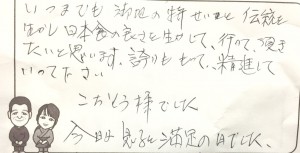 いつまでも 御地の特せいと 伝統を
生かし日本食の良さを生かして、行って頂き
たいと思います。誇りをもって、精進して
いって下さい
こちそう様でした
今日は 息子と満足の日でした、